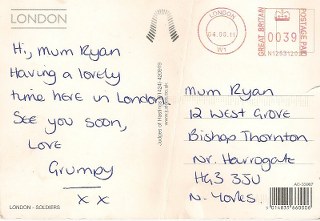 LONDON
Hi, Mum Ryan
Having a lovely
time here in London.
See you soon,
Love
Grumpy
x x
LONDON - SOLDIERS
Judges of Hastings
LONDON
W1
GREAT BRITAIN
0039
POSTAGE PAID
Mum Ryan
12 West Grove
Bishop Thornton
Nr. Harrogate
HG3 3JU
N. Yorks.